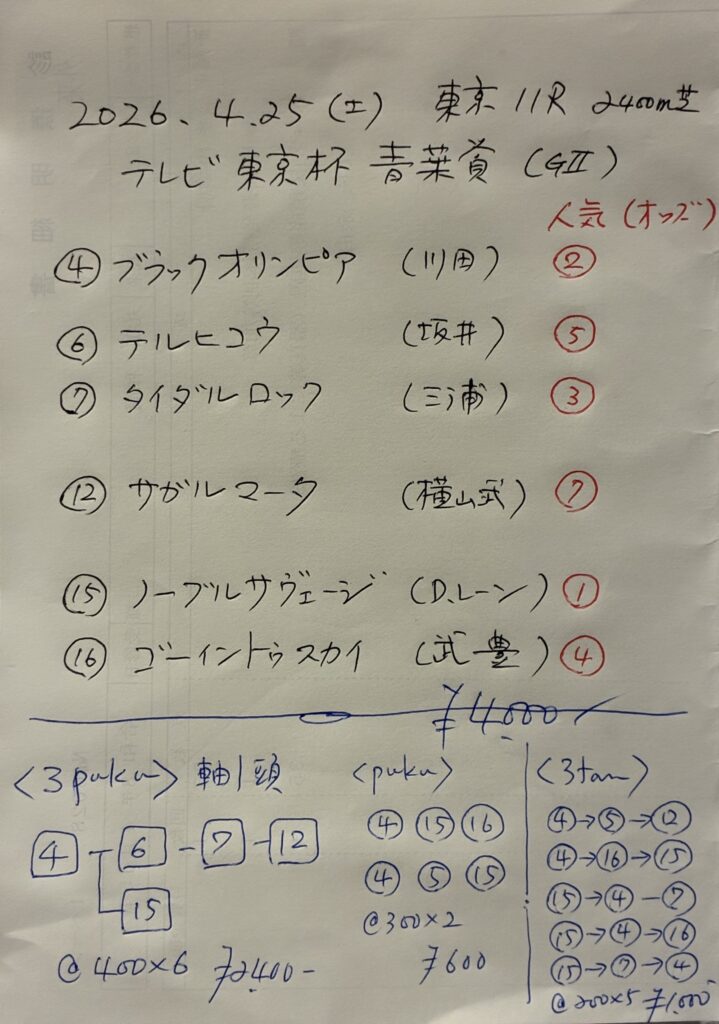 2026. 4.25 (土) 東京 11R 2400m芝
テレビ東京杯 青葉賞 (GII)
人気 (オッズ)
④ ブラックオリンピア (川田) ②
⑥ テルヒコウ (坂井) ⑤
⑦ タイダルロック (三浦) ③
⑫ サガルマータ (横山武) ⑦
⑮ ノーブルサヴェージ (D.レーン) ①
⑯ ゴーイントゥスカイ (武豊) ④
¥4,000
<3puku> 軸1頭
4 - 6 - 7 - 12
15
@400×6 ¥2,400-
<puku>
④ ⑮ ⑯
④ ⑤ ⑮
@300×2
¥600
<3tan>
④→⑤→⑫
④→⑯→⑮
⑮→④-⑦
⑮→④→⑯
⑮→⑦→④
@200×5 ¥1,000-